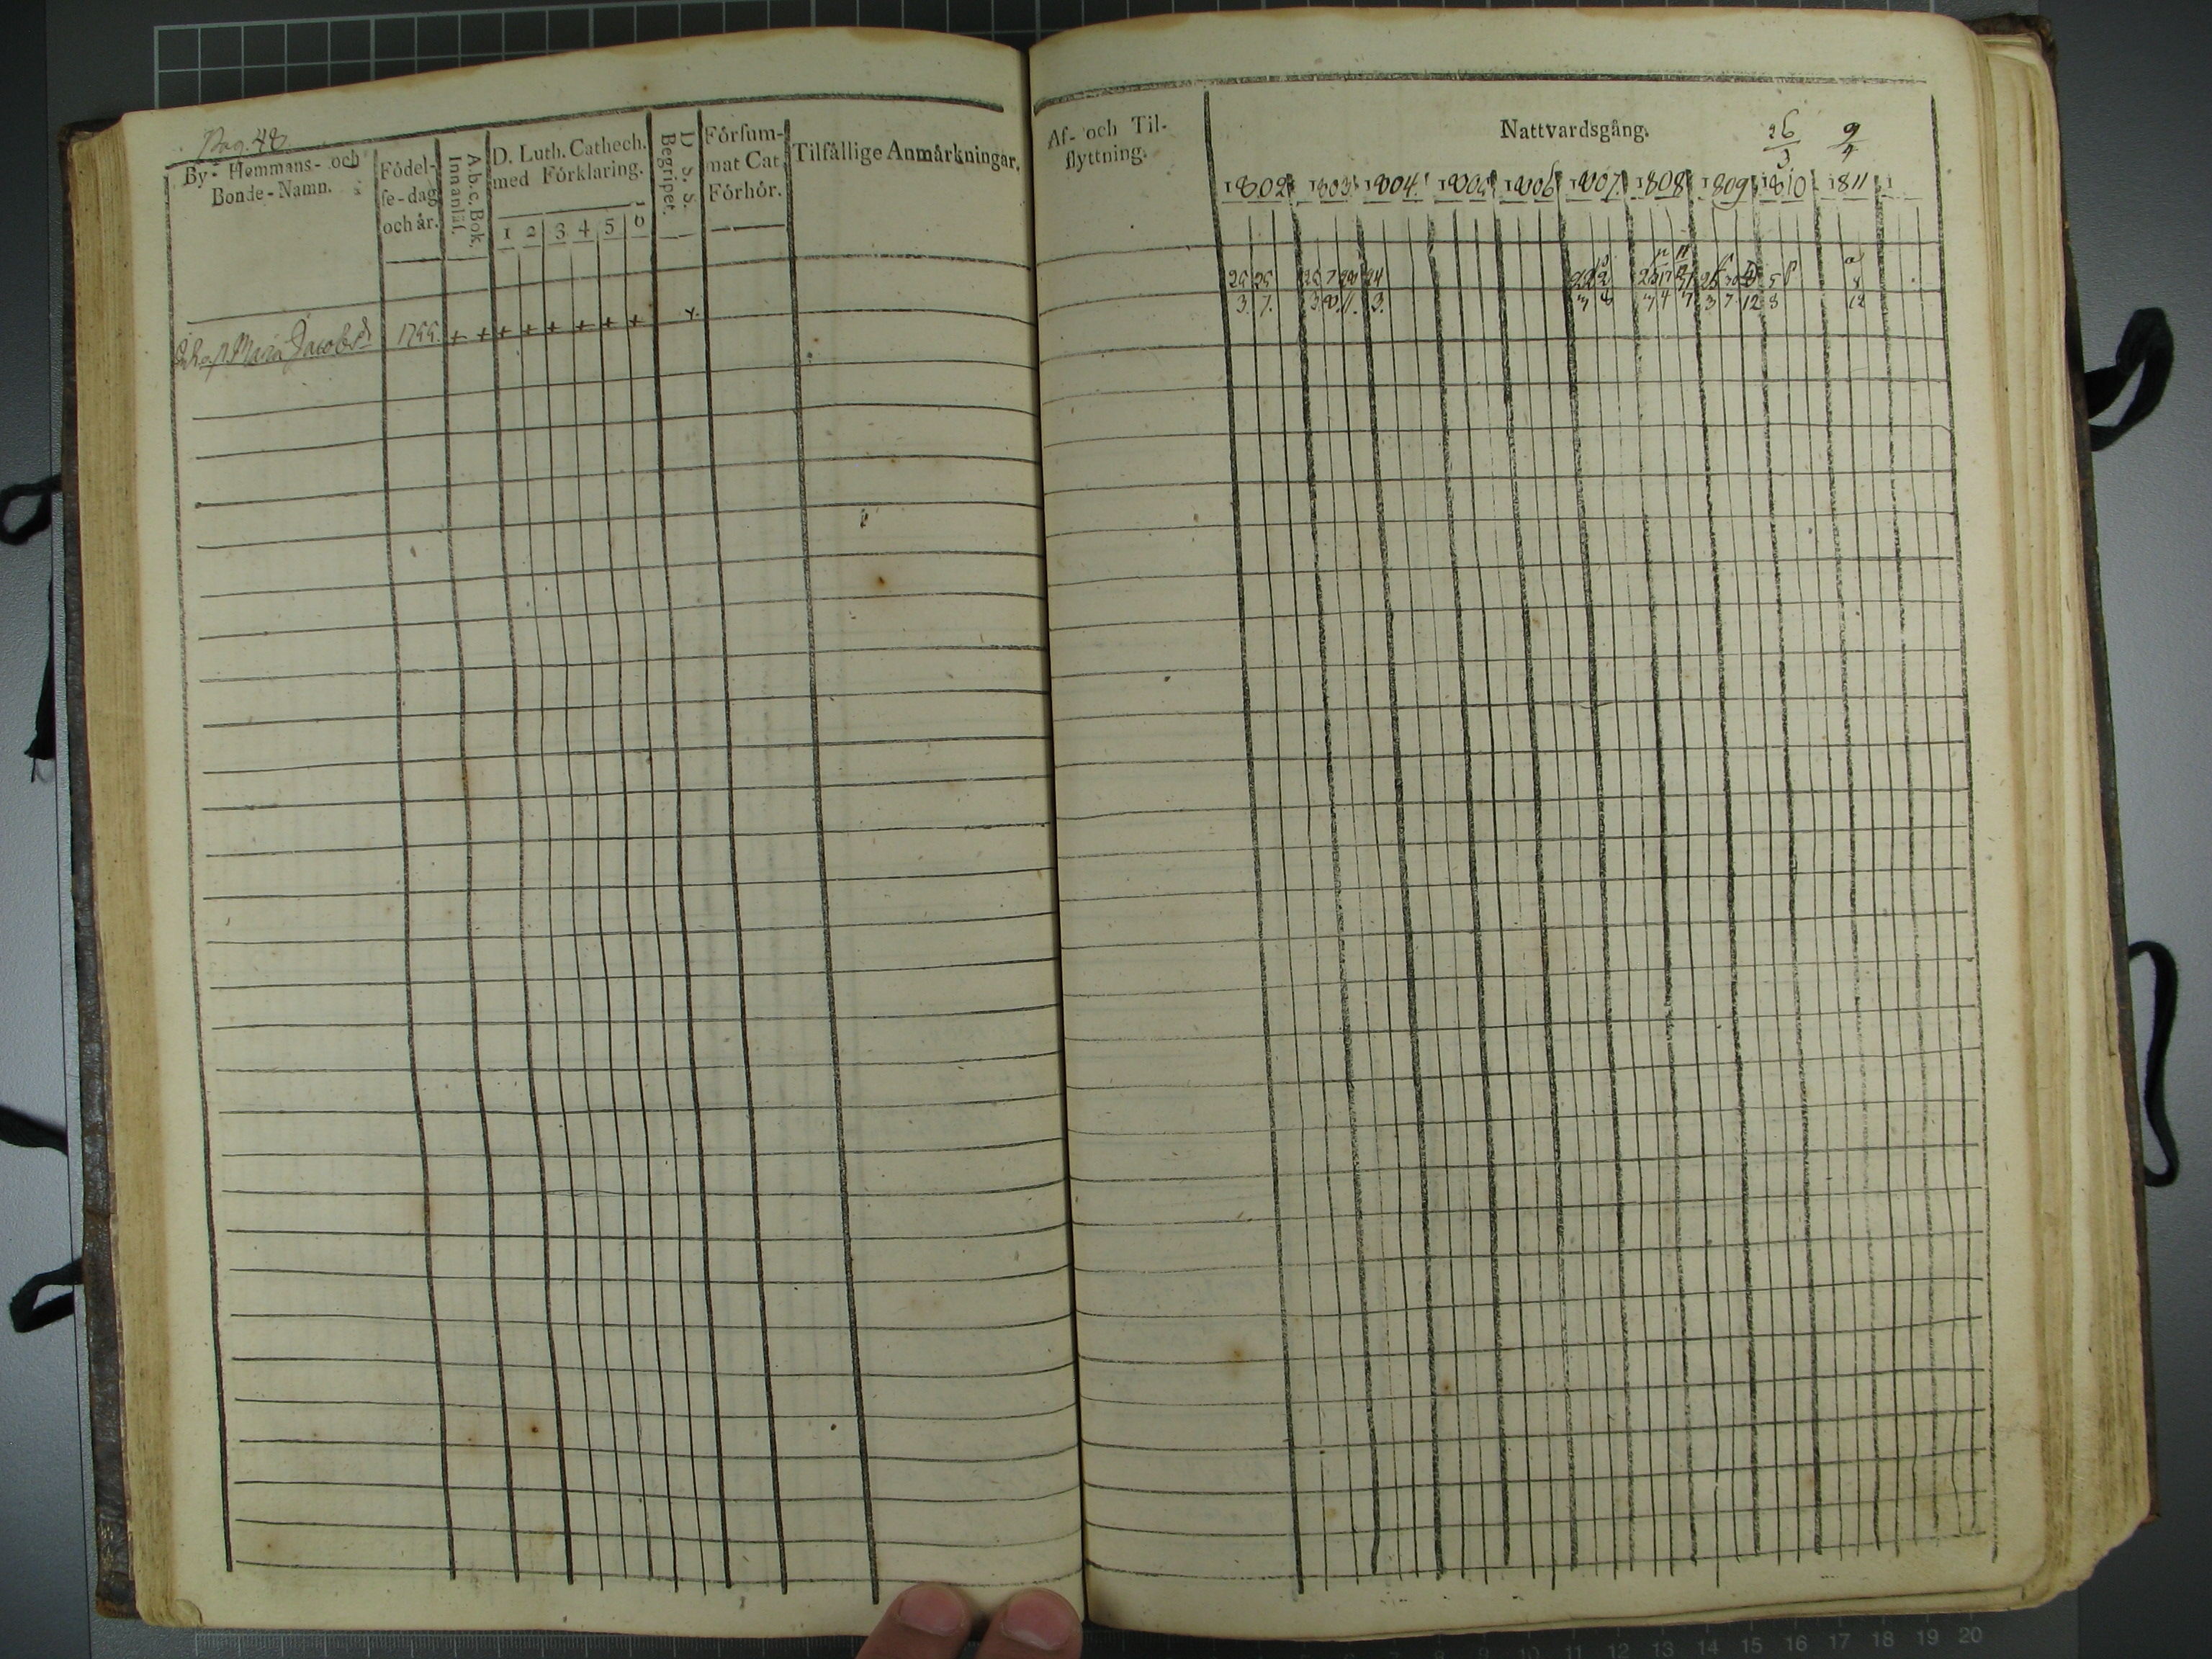 Pag. 48
By- Hemmans- och
Bonde-Namn.
Fódel-
se-dag
och år.
A.b.c. Bok.
Innanläs.
D. Luth. Cathech.
med Fórklaring.
1 2 3 4 5 6
D. S. S.
Begriper.
Fórsum-
mat Cat.
Fórhór.
Tilfällige Anmärkningar.
Maria Jacobsd 1755. + + + + + + + +
Af- och Til-
flyttning.
Nattvardsgång.
26/3 9/4
1802 1803 1804 1805 1806 1807 1808 1809 1810 1811 1
25 25 24
3. 7. 3. 7 8 7 4 7 3 7 12 8 12
16 17 18 19 20
8 9 10 11 12 13 14 15